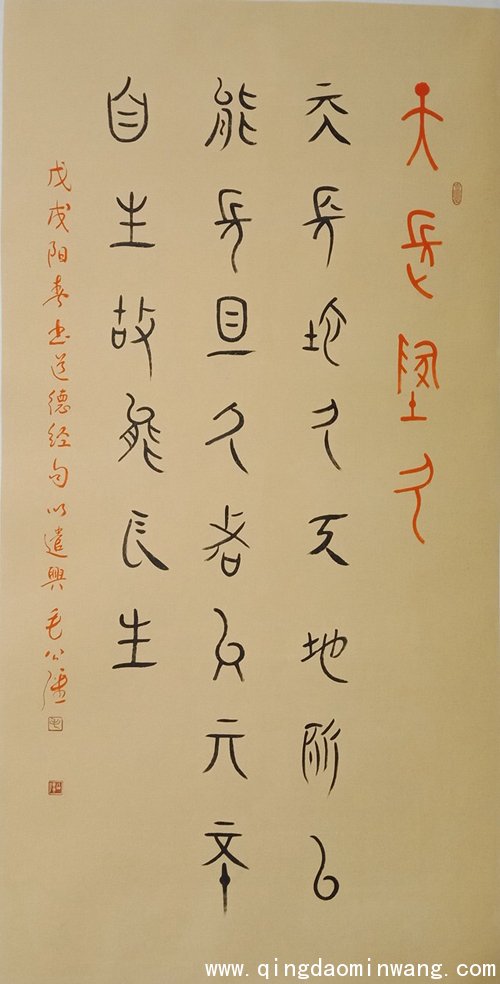 天长地久
天长地久天地所以
能长且久者以其不
自生故能长生
戊戌阳春书道德经句以遣興 毛公强
www.qingdaominwang.com